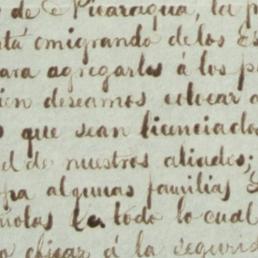 de Nicaragua, la p
tá emigrando de los Es
para agregarlos á los p
ien deseamos colocar a
s que sean licenciados
d de nuestros aliados;
algunas familias
ñolas En todo lo cual
á la segurid